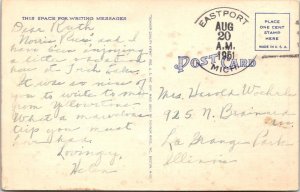 THIS SPACE FOR WRITING MESSAGES
Dear Ruth
Norris Russ and I
have been enjoying
a little
hour at Fish Lake.
It was so nice of
you to write to me
from Yellowstone
What a marvelous
trip you must
have had.
Lovingly,
Helen
EASTPORT
AUG
20
A.M.
1951
MICH.
PLACE
ONE CENT
STAMP
HERE
MADE IN U.S.A.
POST CARD
Mrs. Harold
925 N. Brainard
La Grange Park
Illinois